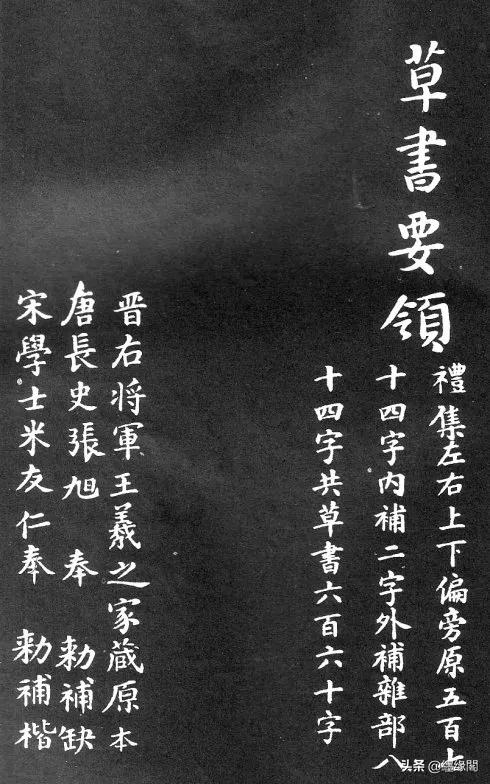 草書要領
禮集左右上下偏旁原五百七
十四字内補二字外補雜部八
十四字共草書六百六十字
晋右将軍王羲之家蔵原本
唐長史張旭 奉 勅補缺
宋學士米友仁奉 勅補楷
头条 @缘閣